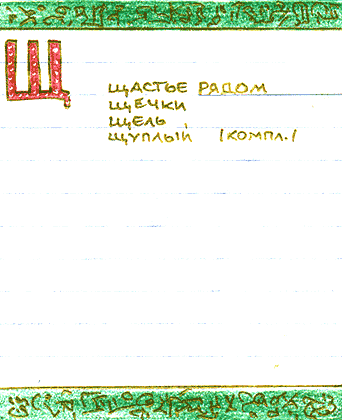 Щ
ЩАСТЬЕ РЯДОМ
ЩЕЧКИ
ЩЕЛЬ
ЩУПЛЫЙ /КОМПЛ./